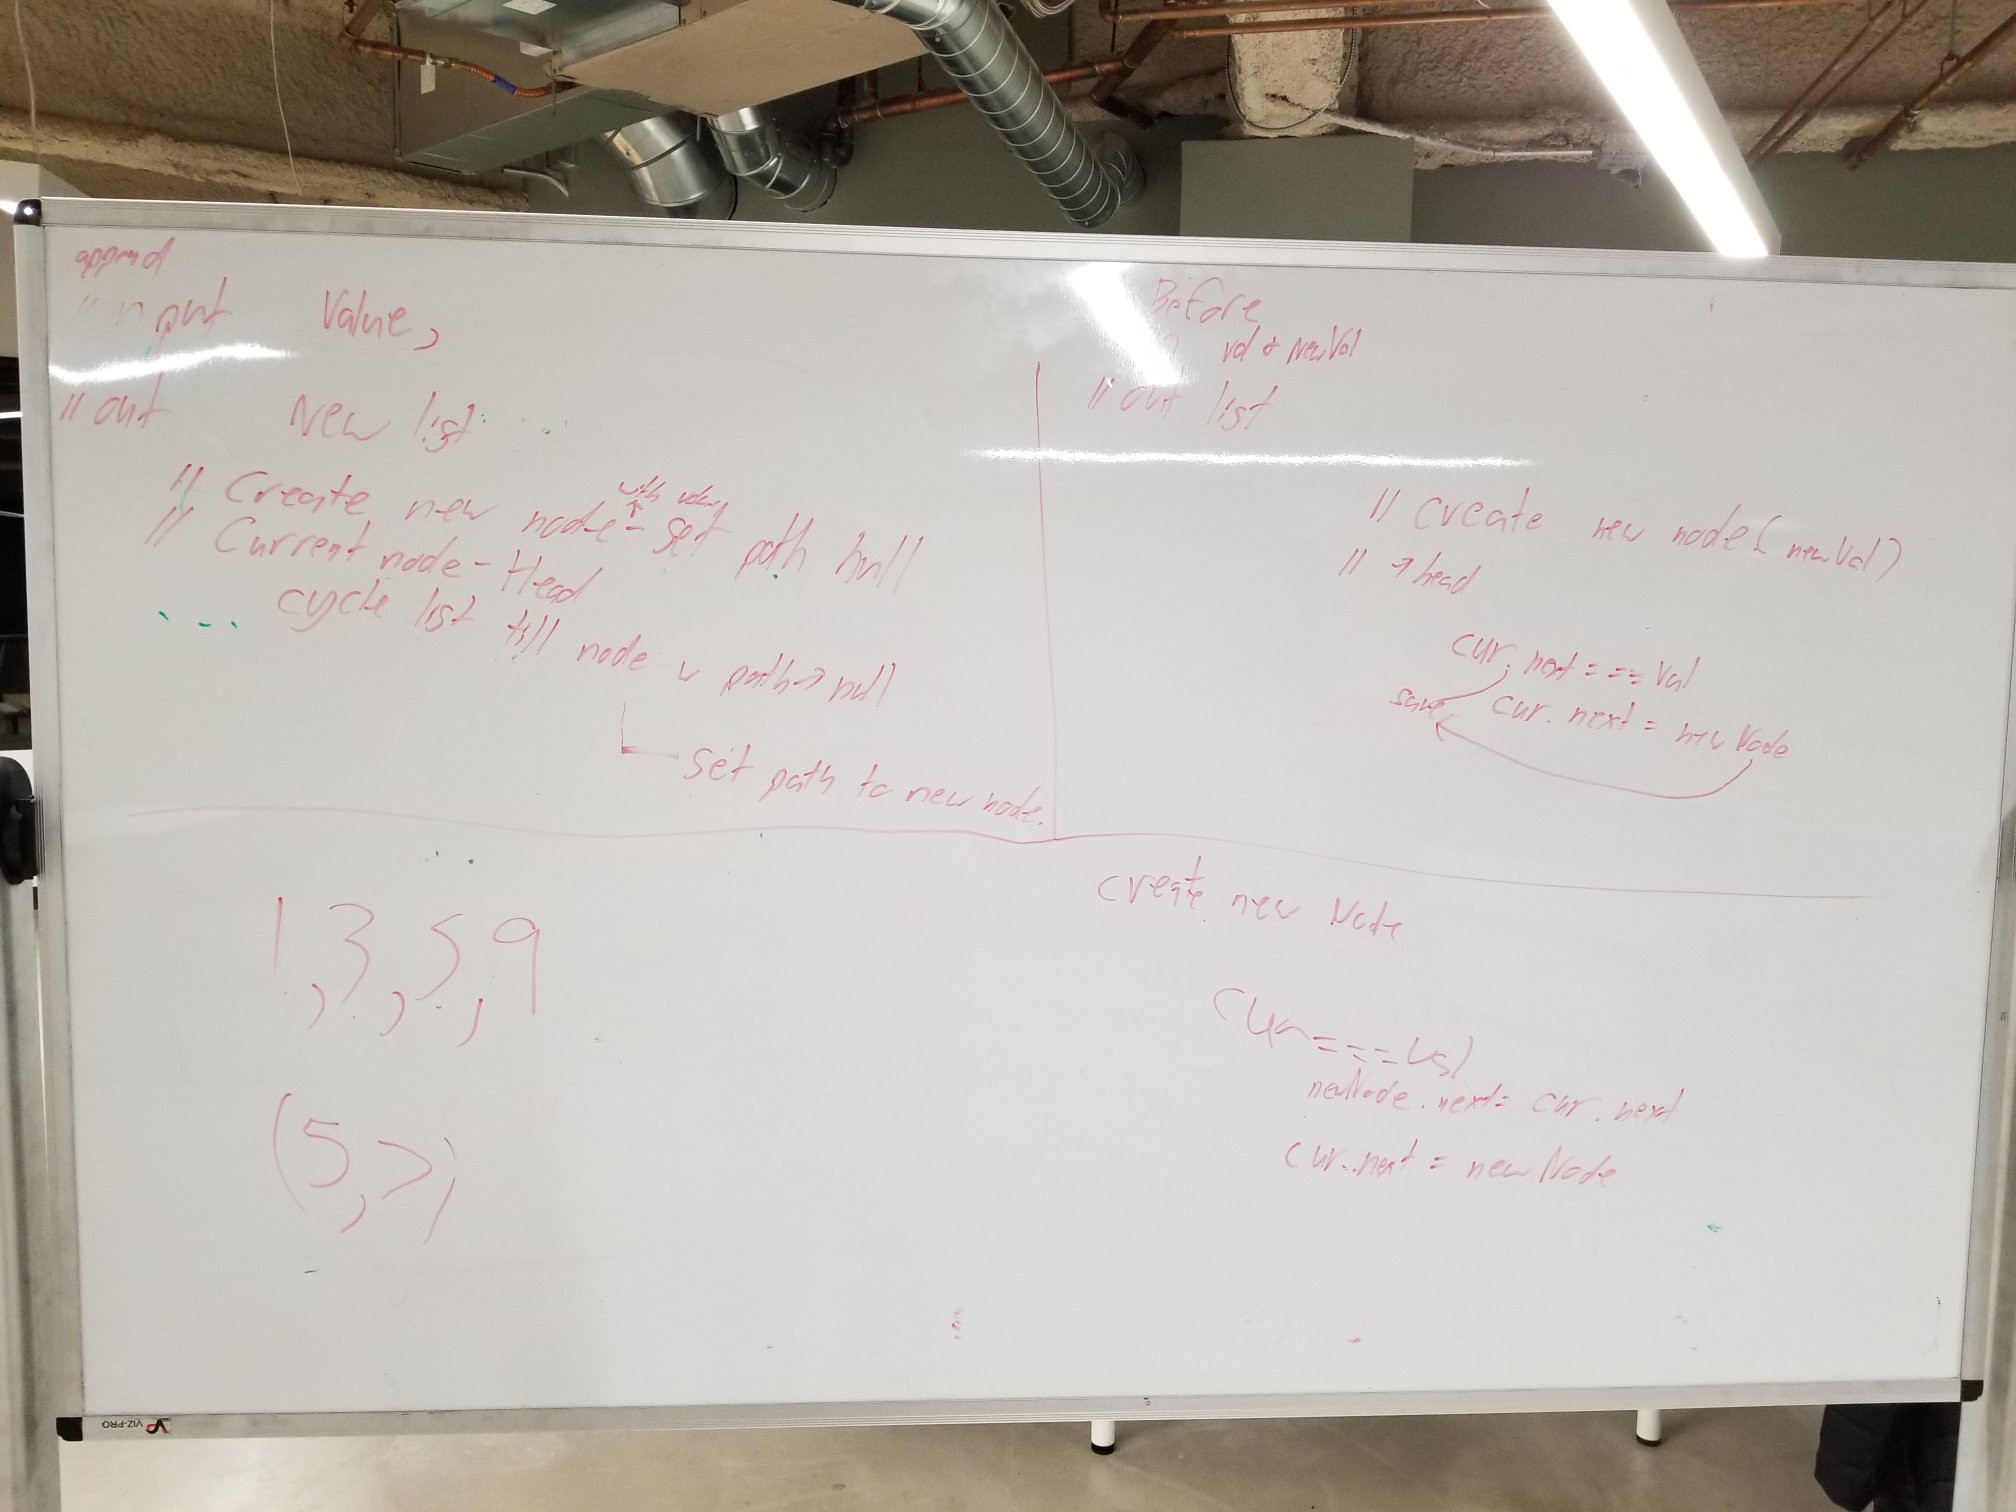 append
// input Value,
// out New list
// Create new node - set path null
with value
// Current node - Head
cycle list till node w path → null
set path to new node.
Before
val & newVal
// out list
// create new node (newVal)
// → head
cur.next === Val
save cur.next = newNode
1, 3, 5, 9
(5,
create new Node
cur === Val
newNode.next = cur.next
cur.next = newNode
VIZ-PRO